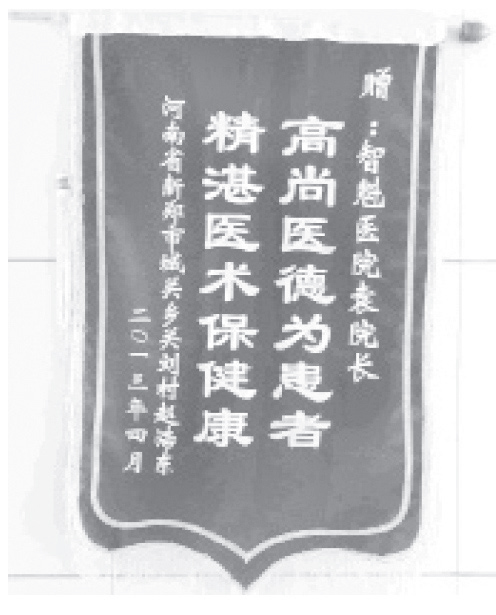 赠：智魁医院袁院长
高尚医德为患者
精湛医术保健康
河南省新郑市城关乡关刘村赵浩东
二〇一三年四月